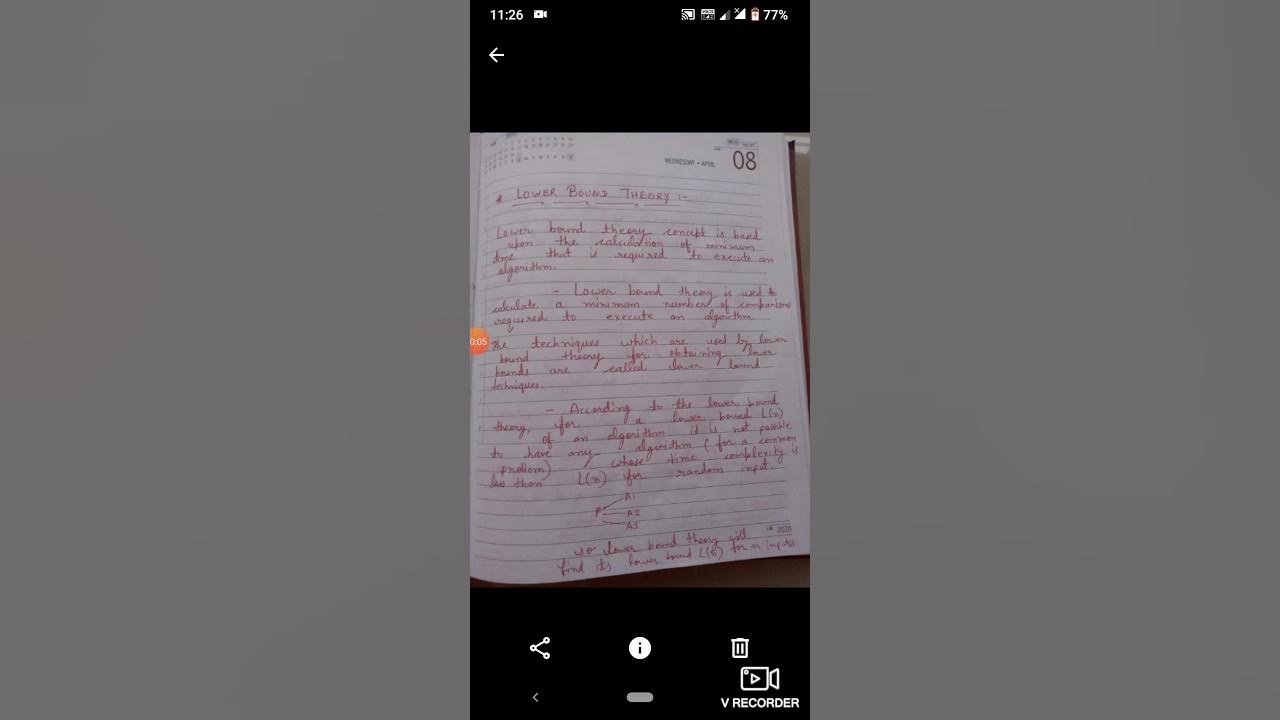 11:26
77%
WEDNESDAY • APRIL
08
* LOWER BOUND THEORY :-
Lower bound theory concept is based
upon the calculation of minimum
time that is required to execute an
algorithm.
- Lower bound theory is used to
calculate a minimum number of comparisons
required to execute an algorithm.
0:05
The techniques which are used by lower
bound theory for obtaining lower
bounds are called lower bound
techniques.
- According to the lower bound
theory, for a lower bound L(n)
of an algorithm it is not possible
to have any algorithm (for a common
problem) whose time complexity is
less than L(n) for random input.
A1
P A2
A3
2020
lower bound theory will
find its lower bound L(n) for n inputs
V RECORDER